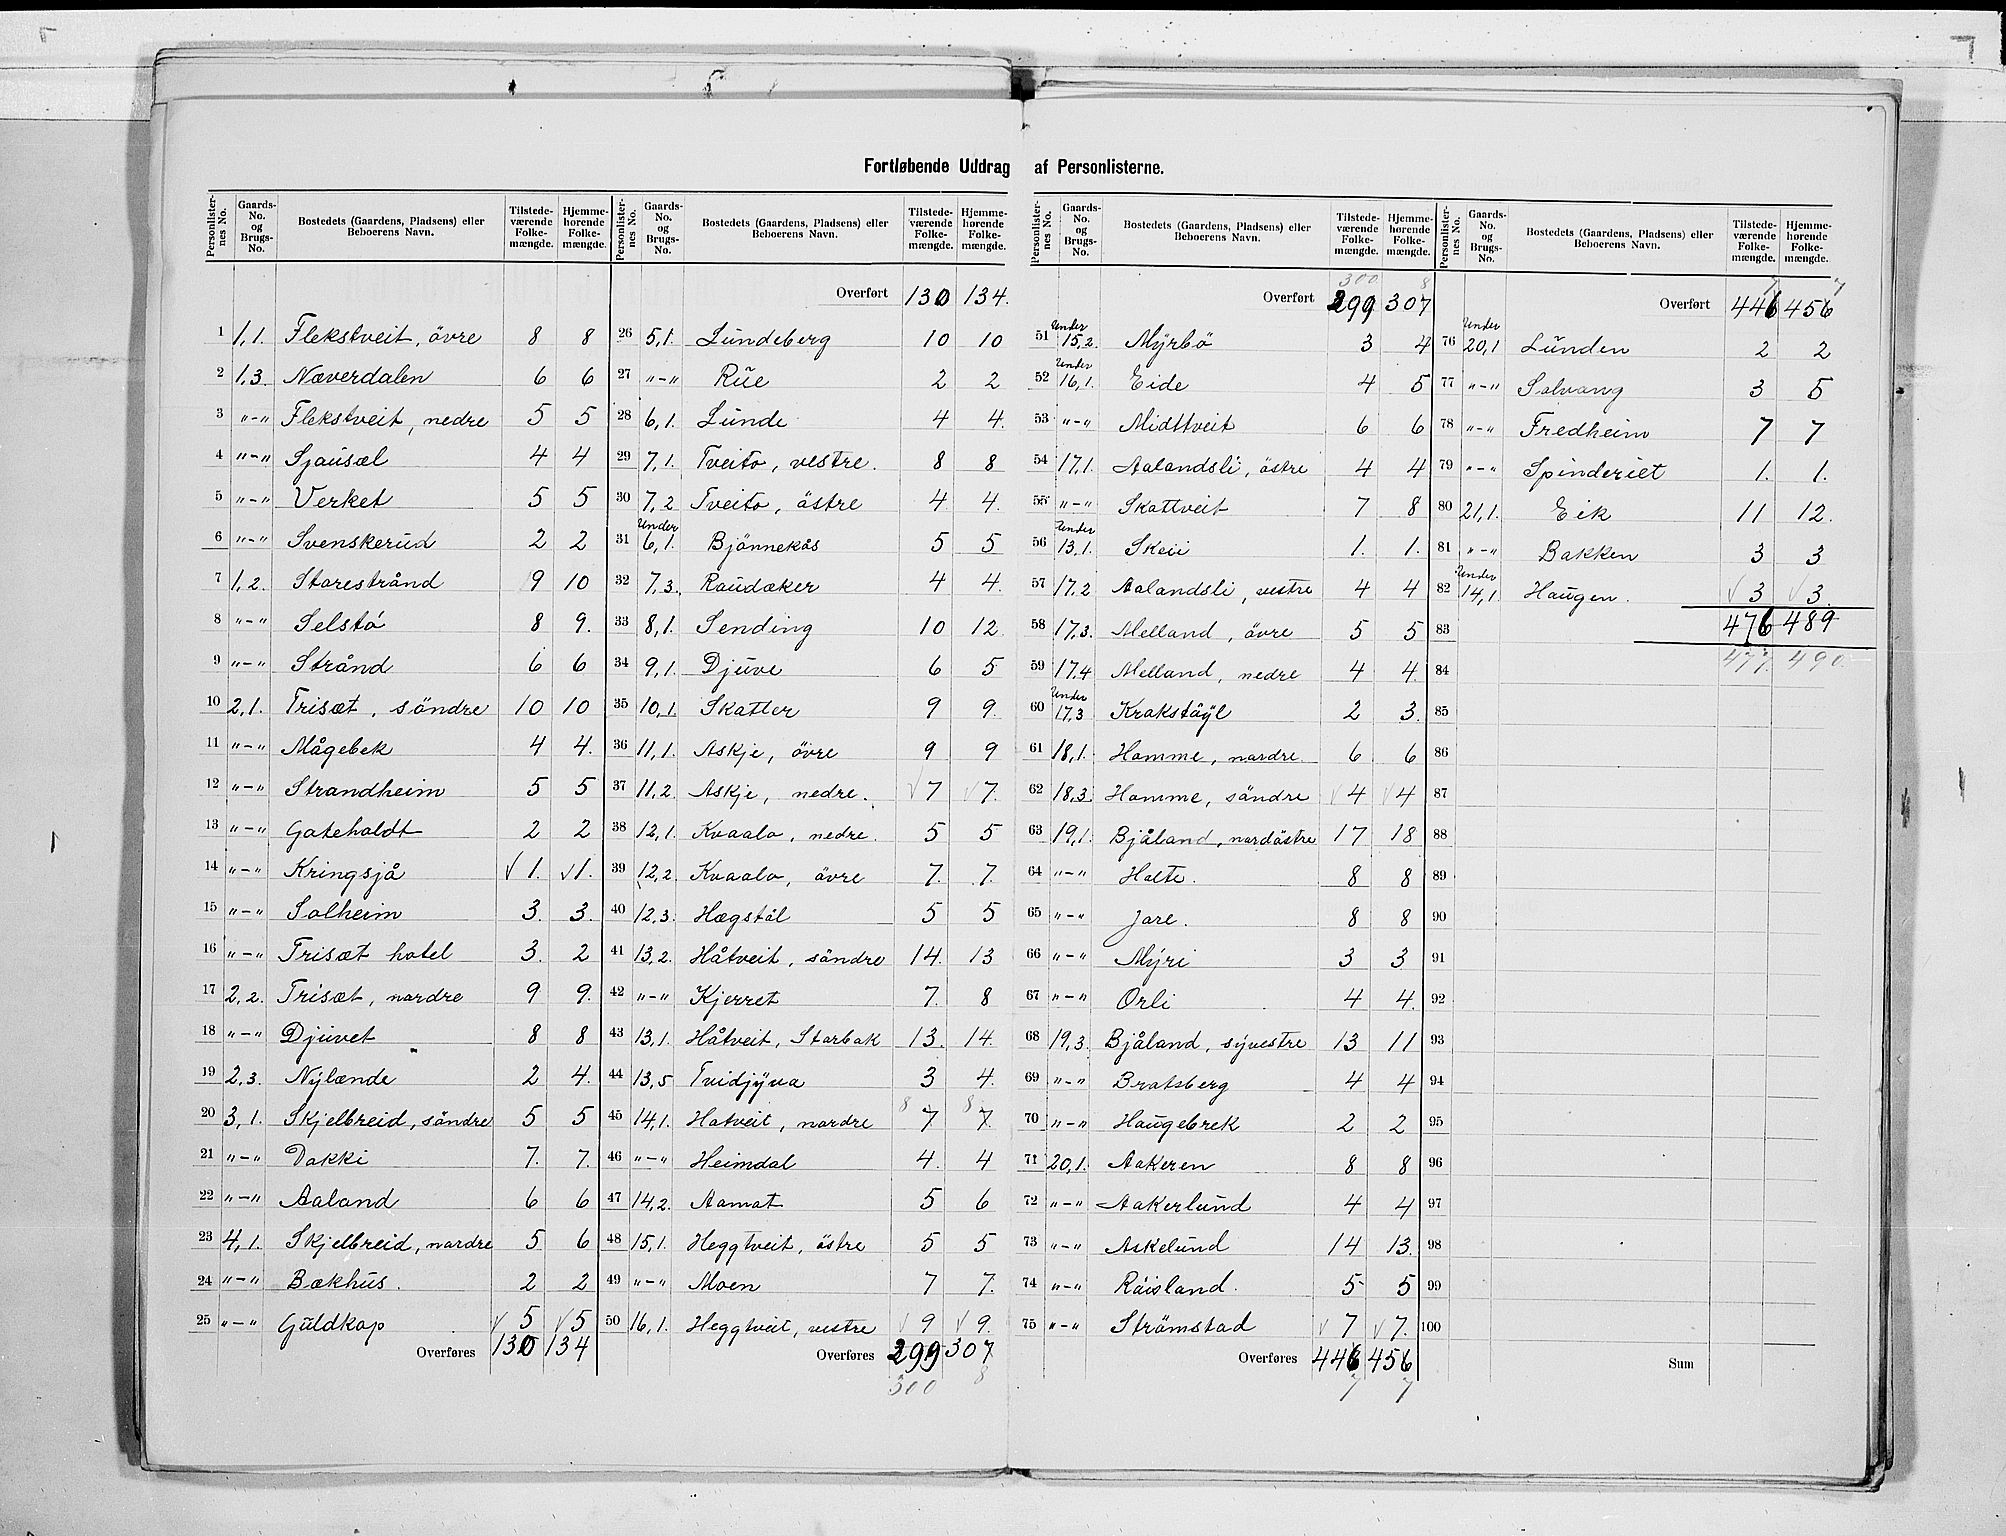 Fortløbende Uddrag af Personlisterne.
Personlisternes No. Gaards-No. og Brugs-No. Bostedets (Gaardens, Pladsens) eller Beboerens Navn. Tilstedeværende Folkemængde. Hjemmehørende Folkemængde.
1 1,1. Flekstveit, övre 8 8
2 1,3. Næverdalen 6 6
3 "-" Flekstveit, nedre 5 5
4 "-" Sjausæl 4 4
5 "-" Verket 5 5
6 "-" Svenskerud 2 2
7 1,2. Storestrånd 9 10
8 "-" Selstö 8 9.
9 "-" Strånd 6 6
10 2,1. Trisæt, söndre 10 10
11 "-" Mågebek 4 4.
12 "-" Strandheim 5 5
13 "-" Gateholdt 2 2
14 "-" Kringsjå √ 1. √ 1.
15 "-" Solheim 3. 3.
16 "-" Trisæt hotel 3. 2
17 2,2. Trisæt, nordre 9 9.
18 "-" Djuvet 8 8
19 2,3. Nylænde 2 4.
20 3,1. Skjelbreid, söndre 5 5
21 "-" Dokki 7. 7.
22 "-" Aaland 6 6
23 4,1. Skjelbreid, nordre 5 6
24 "-" Bækhus. 2 2
25 "-" Guldkop √ 5 √ 5
Overføres 130 134
Personlisternes No. Gaards-No. og Brugs-No. Bostedets (Gaardens, Pladsens) eller Beboerens Navn. Tilstedeværende Folkemængde. Hjemmehørende Folkemængde.
Overført 130 134.
26 5,1. Lundeberg 10 10
27 "-" Rue 2 2
28 6,1. Lunde 4 4.
29 7,1. Tveito, vestre. 8 8
30 7,2 Tveito, östre 4 4.
31 Under 6,1. Bjönnekås 5 5
32 7,3. Raudaker 4 4.
33 8,1. Sending 10 12.
34 9,1. Djuve 6 5
35 10,1. Skatter 9 9.
36 11,1. Askje, övre 9 9
37 11,2. Askje, nedre. √ 7 √ 7.
38 12,1. Kvaalo, nedre. 5 5
39 12,2. Kvaalo, övre 7. 7.
40 12,3. Hægstöl 5 5
41 13,2. Håtveit, söndre 14. 13
42 "-" Kjerret 7. 8
43 13,1. Håtveit, Storbak 13. 14.
44 13,5 Tvidjyva 3 4.
45 14,1. Hatveit, nordre 8 7 8 7.
46 "-" Heimdal 4. 4
47 14,2. Aamot 5 6
48 15,1. Heggtveit, östre 5 5
49 "-" Moen 7 7.
50 16,1. Heggtveit, vestre √ 9 √ 9.
Overføres 299 307
300 8
Personlisternes No. Gaards-No. og Brugs-No. Bostedets (Gaardens, Pladsens) eller Beboerens Navn. Tilstedeværende Folkemængde. Hjemmehørende Folkemængde.
300 8
Overført 299 307
51 Under 15,2. Myrbö 3 4
52 Under 16,1. Eide 4 5
53 "-" Midttveit 6 6
54 17,1. Aalandsli, östre 4 4
55 "-" Skottveit 7 8
56 Under 13,1. Skeii 1. 1.
57 17,2 Aalandsli, vestre 4 4
58 17,3. Melland, övre 5 5
59 17,4 Melland, nedre 4 4.
60 Under 17,3 Krakstöyl 2 3.
61 18,1. Homme, nordre 6 6
62 18,3. Homme, söndre √ 4 √ 4
63 19,1. Bjåland, nordöstre 17 18
64 "-" Holte. 8 8
65 "-" Jore. 8 8
66 "-" Myri 3 3
67 "-" Orli 4 4.
68 19,3. Bjåland, syvestre 13 11
69 "-" Bratsberg 4 4
70 "-" Haugebrek 2 2
71 20,1. Aakeren 8 8
72 "-" Aakerlund 4 4
73 "-" Askelund 14 13.
74 "-" Röisland. 5 5
75 "-" Strömstad √ 7 √ 7.
Overføres 446 456
7 7
Personlisternes No. Gaards-No. og Brugs-No. Bostedets (Gaardens, Pladsens) eller Beboerens Navn. Tilstedeværende Folkemængde. Hjemmehørende Folkemængde.
7 7
Overført 446 456
76 Under 20,1 Lunden 2 2
77 "-" Solvang 3 5
78 "-" Fredheim 7 7
79 "-" Spinderiet 1. 1.
80 21,1. Eik 11 12.
81 "-" Bakken 3 3
82 Under 14,1. Haugen. √ 3 √ 3.
83 476 489
84 477 490
85
86
87
88
89
90
91
92
93
94
95
96
97
98
99
100
Sum